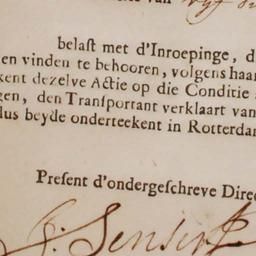 van
belaſt met d'Inroepinge, d
en vinden te behooren, volgens haar
kent dezelve Actie op die Conditie
gen, den Tranſportant verklaart van
lus beyde onderteekent in Rotterdam
Preſent d'ondergeſchreve Direc